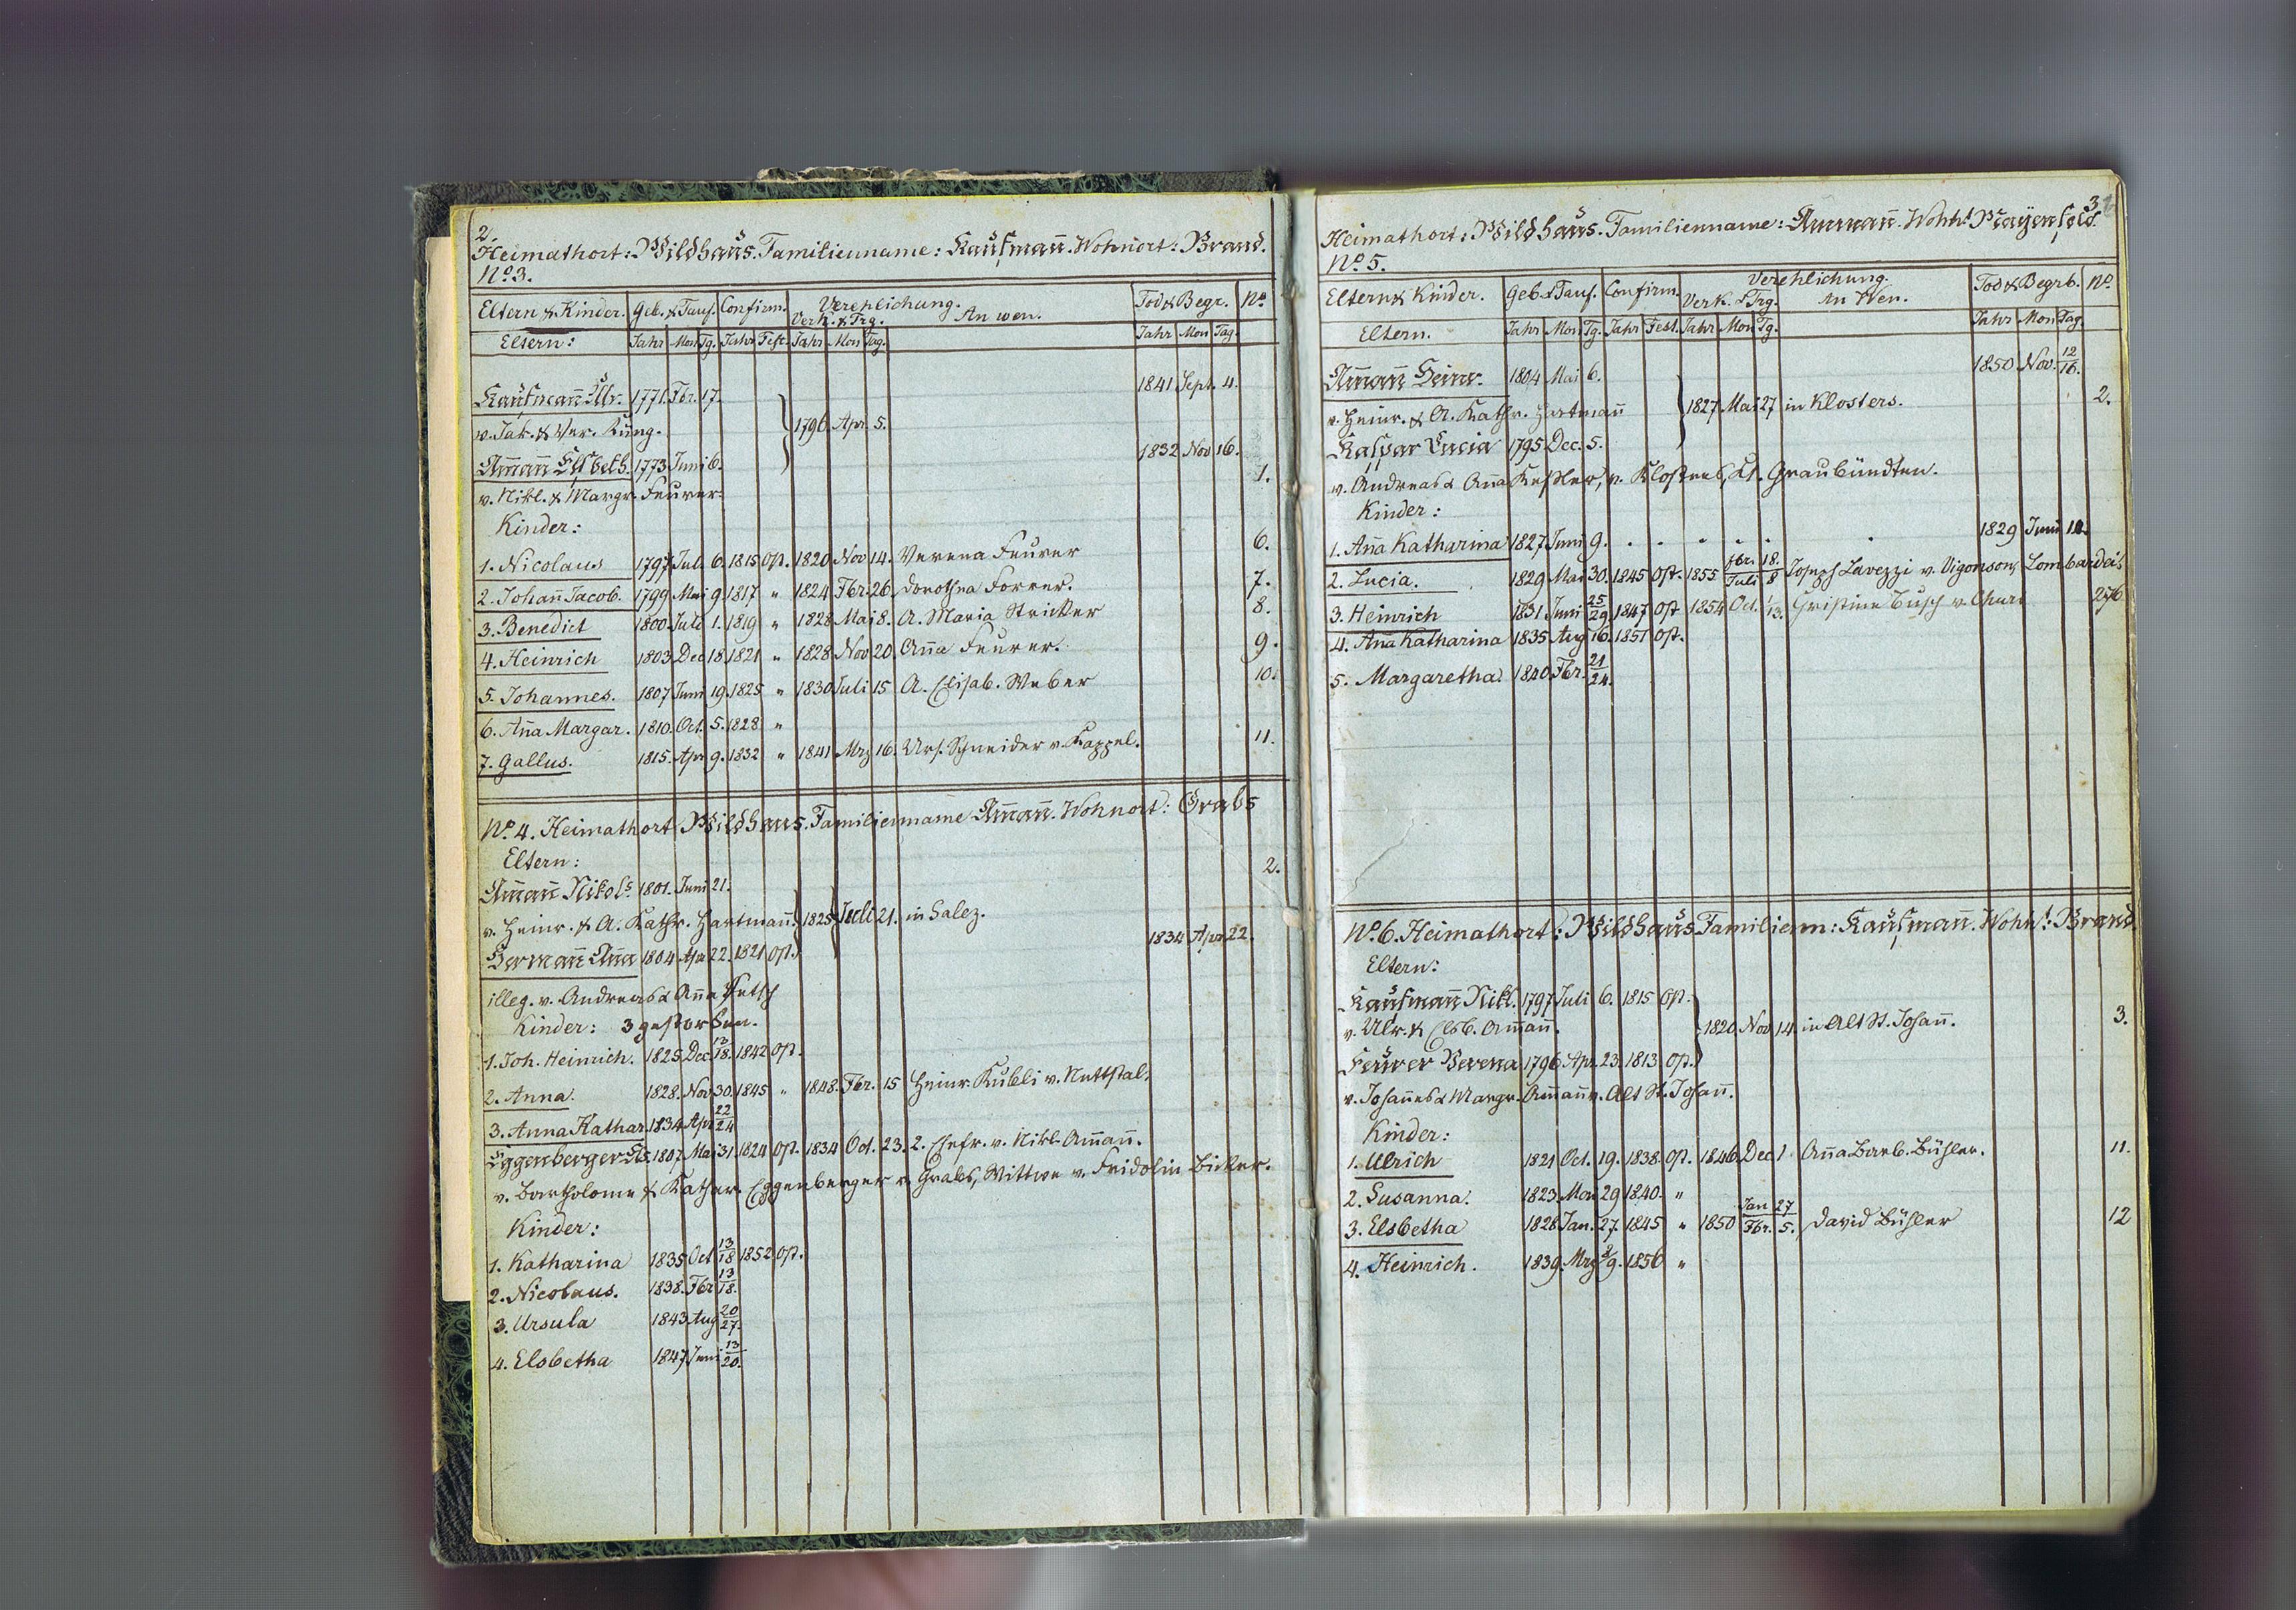 2.
Heimathort: Wildhaus. Familienname: Kaufmañ. Wohnort: Brand.
No. 3.
Eltern & Kinder. Geb. & Tauf. Confirm. Verehlichung. Tod & Begr. No
Verk. & Trg. An wen.
Eltern: Jahr Mon Tg. Jahr Fest. Jahr Mon Tag. Jahr Mon Tag.
Kaufmañ Ulr. 1771. Fbr. 17. 1841 Sept. 4.
v. Jak. & Ver. Küng. 1796 Apr. 5.
Am̃añ Elsbeth. 1773 Juni 6. 1832 Nov 16.
v. Nikl. & Margr. Feurer. 1.
Kinder:
1. Nicolaus 1797 Jul. 6. 1815 Ost. 1820 Nov 14. Verena Feurer 6.
2. Johañ Jacob. 1799 Mai 9. 1817 " 1824 Fbr. 26. Dorothea Forrer. 7.
3. Benedict 1800 Juli 1. 1819 " 1828 Mai 8. A. Maria Stricker 8.
4. Heinrich 1803 Dec 18. 1821 " 1828 Nov 20. Aña Feurer. 9.
5. Johannes. 1807 Juni 19. 1825 " 1830 Juli 15 A. Elisab. Weber 10.
6. Aña Margar. 1810. Oct. 5. 1828 "
7. Gallus. 1815. Apr 9. 1832 " 1841 Mrz 16. Urs. Schneider v. Kappel. 11.
No. 4. Heimathort Wildhaus. Familienname Am̃añ. Wohnort: Grabs
Eltern: 2.
Am̃añ Nikols 1801. Juni 21.
v. Heinr. & A. Kathr. Hartmañ. 1825 Juli 21. in Salez.
Hermañ Aña 1804 Apr 22. 1821 Ost. 1834 Apr 22.
illeg. v. Andreas & Aña
Kinder: 3 gestorben.
1. Joh. Heinrich. 1825 Dec. 12/18. 1842 Ost.
2. Anna. 1828. Nov 30. 1845 " 1848. Fbr. 15 Heinr. Kubli v. Nettstal.
3. Anna Kathar. 1834 Apr 22/24
Eggenberger Els. 1807. Mai 31. 1824 Ost. 1834 Oct. 23. 2. Ehefr. v. Nikl. Am̃añ.
v. Bartholome & Kathar. Eggenberger v. Grabs, Wittwe v. Fridolin Bicker.
Kinder:
1. Katharina 1835 Oct 13/18 1852 Ost.
2. Nicolaus. 1838. Fbr 13/18.
3. Ursula 1843 Aug 20/27.
4. Elsbetha 1847 Juni 13/20.
3.
Heimathort: Wildhaus. Familienname: Ammañ. Wohnt. Mayenfeld.
No. 5.
Eltern & Kinder. Geb. & Tauf. Confirm. Verehlichung. Tod & Begrb. No.
Verk. & Trg. An Wen.
Eltern. Jahr Mon Tg. Jahr Fest. Jahr Mon Tg. Jahr Mon Tag.
Am̃añ Heinr. 1804 Mai 6. 1850 Nov. 12/16.
v. Heinr. & A. Kathr. Hartmañ 1827 Mai 27 in Klosters. 2.
Kaspar Lucia 1795 Dec. 5.
v. Andreas & Aña Keßler, v. Klosters, Kt. Graubündten.
Kinder:
1. Aña Katharina 1827 Juni 9. . . . . . . 1829 Juni 12.
2. Lucia. 1829 Mai 30. 1845 Ost. 1855 Fbr. 18./Juli 8 Joseph Lavezzi v. Vigonsons, Lombardei.
3. Heinrich 1831 Juni 25/29. 1847 Ost 1854 Oct. 1/13. Cristine Busch v. Chur.
4. Aña Katharina 1835 Aug 16. 1851 Ost.
5. Margaretha. 1840 Fbr. 21/24.
No. 6. Heimathort: Wildhaus Familienn: Kaufmañ. Wohnt: Brand
Eltern:
Kaufmañ Nikl. 1797 Juli 6. 1815 Ost.
v. Ulr. & Elsb. Am̃añ. 1820 Nov 14. in Alt St. Johañ. 3.
Feurer Verena 1796 Apr. 23. 1813 Ost.
v. Johañes & Margr. Am̃añ v. Alt St. Johañ.
Kinder:
1. Ulrich 1821 Oct. 19. 1838. Ost. 1846 Dec 1 Aña Barb. Bühler. 11.
2. Susanna. 1823. Mai 29 1840. "
3. Elsbetha 1828 Jan. 27. 1845 " 1850 Jan 27/Fbr. 5. David Bühler 12
4. Heinrich. 1839. Mrz 2/9. 1856 "